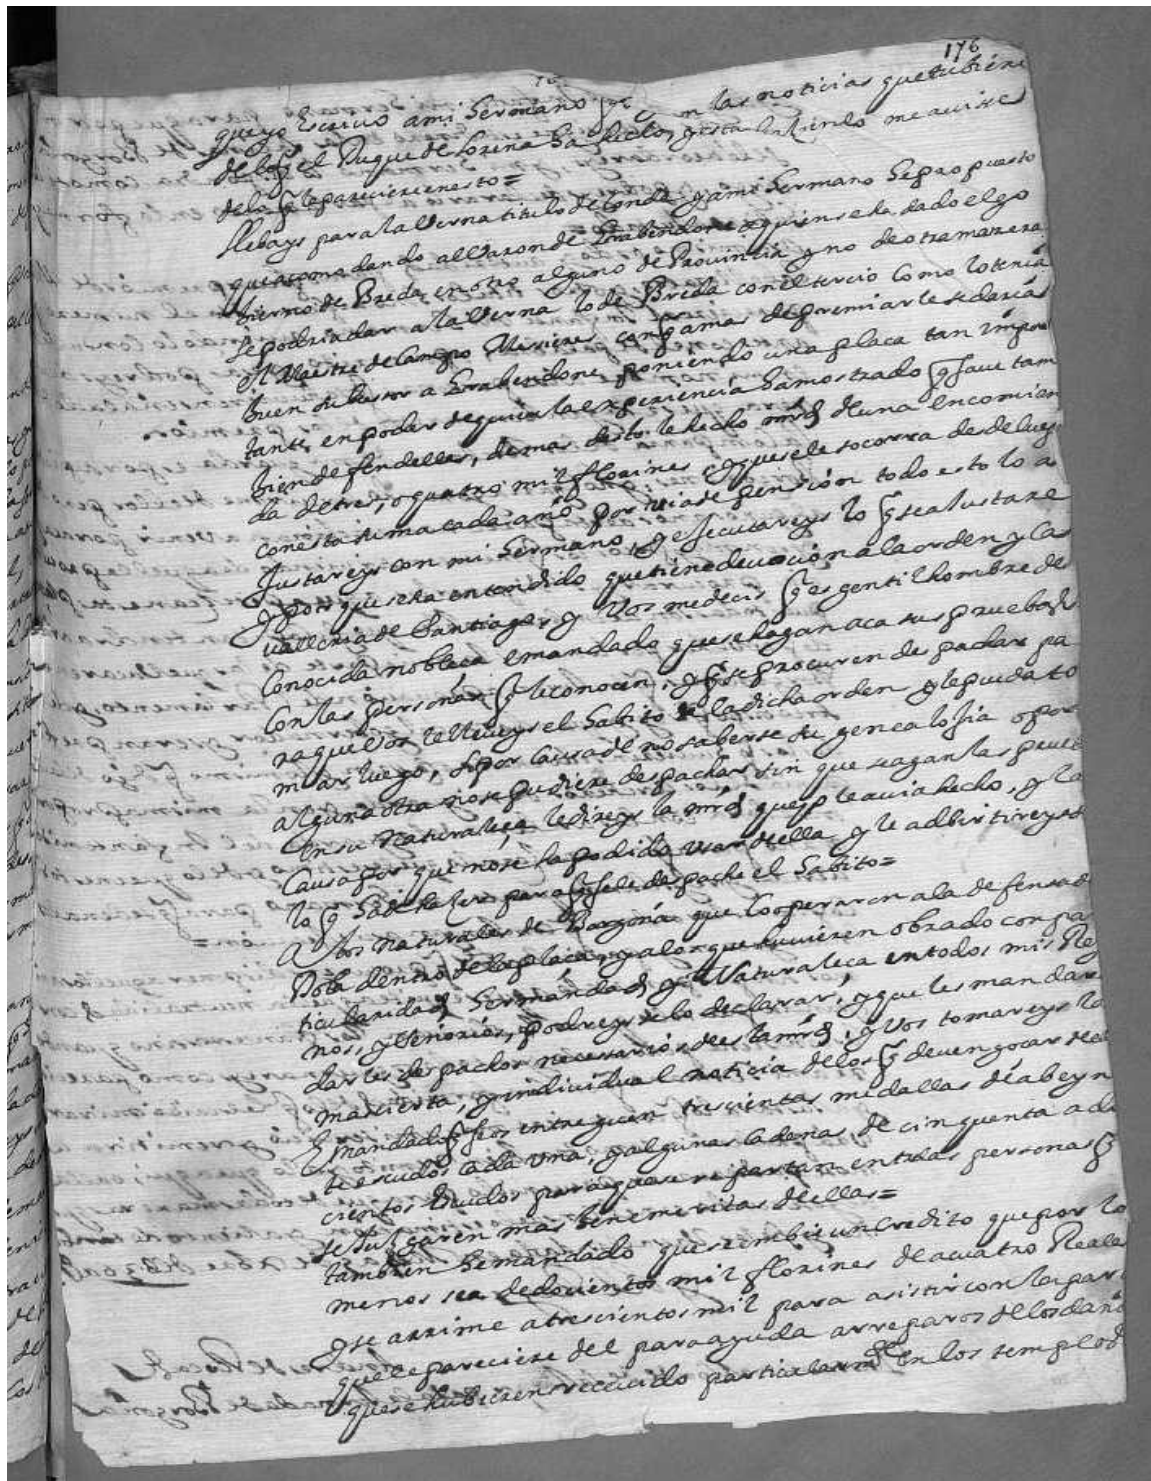 176
que yo escrivo a mi Hermano, q̃ con las noticias que tubiere
de lo q̃ el Duque de Lorena ha hecho, y esta haziendo me avise
de lo q̃ le pareciere en esto=
Llebays para la Verna titulo de Conde y a mi Hermano he propuesto
que acomodando al Varon de Grabendonc a quien se ha dado el go
bierno de Breda en otro alguno de Provincia y no de otra manera
se podria dar a la Verna lo de Breda con el tercio como lo tenia
el Maestre de Campo con q̃ a mas de premiarle se daria
buen subcesor a Grabendonc poniendo una plaça tan impor
tante, en poder de quien la experiencia ha mostrado q̃ save tam
bien defendellas, demas desto le he hecho mrd̃ de una encomien
da de tres, o quatro mil florines y que se le socorra desde luego
con esta suma cada año por via de pension todo esto lo a
justareys con mi Hermano, y executareys lo q̃ se ajustare
y por que se ha entendido que tiene devoción a la orden y ca
valleria de Santiago, y Vos me decis q̃ es gentil hombre de
conocida nobleça e mandado que se hagan aca sus pruebas
con las personas q̃ le conocen, y q̃ se procuren despachar pa
ra que Vos le lleveys el habito de la dicha orden y le pueda to
mar luego, si por causa de no saberse su genealogia o por
alguna otra no se pudiere despachar sin que se agan las prueb
en su naturaleça le direys la mrd̃ que yo le avia hecho, y la
causa por que no se ha podido usar della y le adbirtireys d
lo q̃ ha de hazer para q̃ se le despache el habito=
A los naturales de Borgoña que cooperaron a la defensa de
Dola dentro de la plaça, y a los que huvieren obrado con pa
ticularidad Hermandad y Naturaleça en todos mis Rey
nos, y Señorios, podreys se lo declarar, y que les mandare
dar les despachos necessarios de esta mrd̃, y Vos tomareys la
mas cierta, y individual noticia de los q̃ deven goçar della
E mandado q̃ se os entreguen trescientas medallas de a beyn
te escudos cada una, y algunas cadenas de cinquenta a do
cientos escudos para que se repartan entre las personas q̃
se juzgaren mas benemeritas dellas=
tambien he mandado que se embie un credito que por lo
menos sea de docientos mil florines de a cuatro Reales
y se arrime a trescientos mil para asistir con la par
que le pareciere del para ayuda a rreparos de los daños
que se hubieren recevido particularmte en los templos d